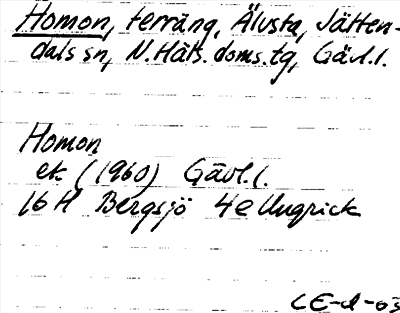 Homon, terräng, Älvsta, Jätten-
dals sn, N. Häls. doms.tg, Gävl.l.
Homon
ek (1960) Gävl.l.
16 H Bergsjö 4e Ungrick
CE-d-03